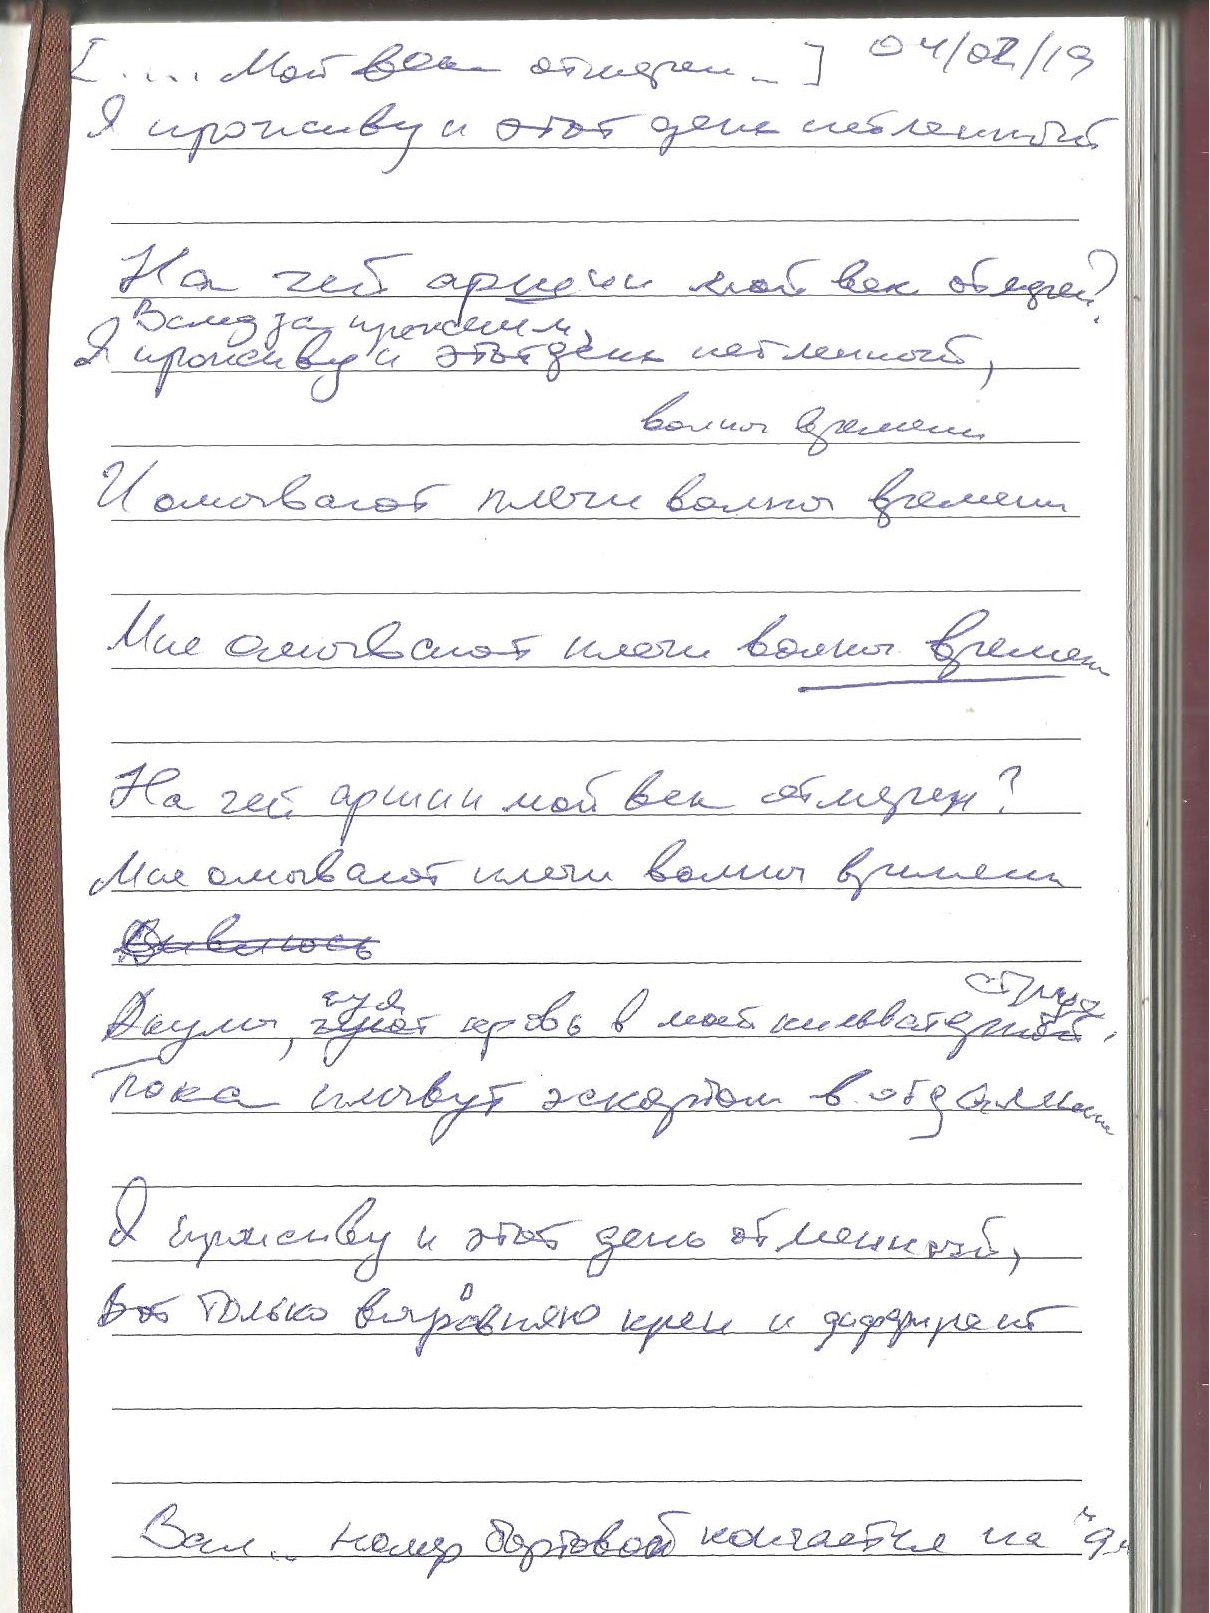 [.... Мой век отмерен...] 04/02/19
Я проживу и этот день нетленный
На чей аршин мой век отмерен?
Вслед за прожитым,
Я проживу и этот день нетленный,
волны времени
И омывают плечи волны времени
Мне омывают плечи волны времени
На чей аршин мой век отмерен?
Мне омывают плечи волны времени
чуя струе
Акулы, чуют кровь в моей кильватерной,
Пока плывут эскортом в отдалении
Я проживу и этот день отменный,
Вот только выровняю крен и дифферент
Вам.. номер бортовой кончается на "9"